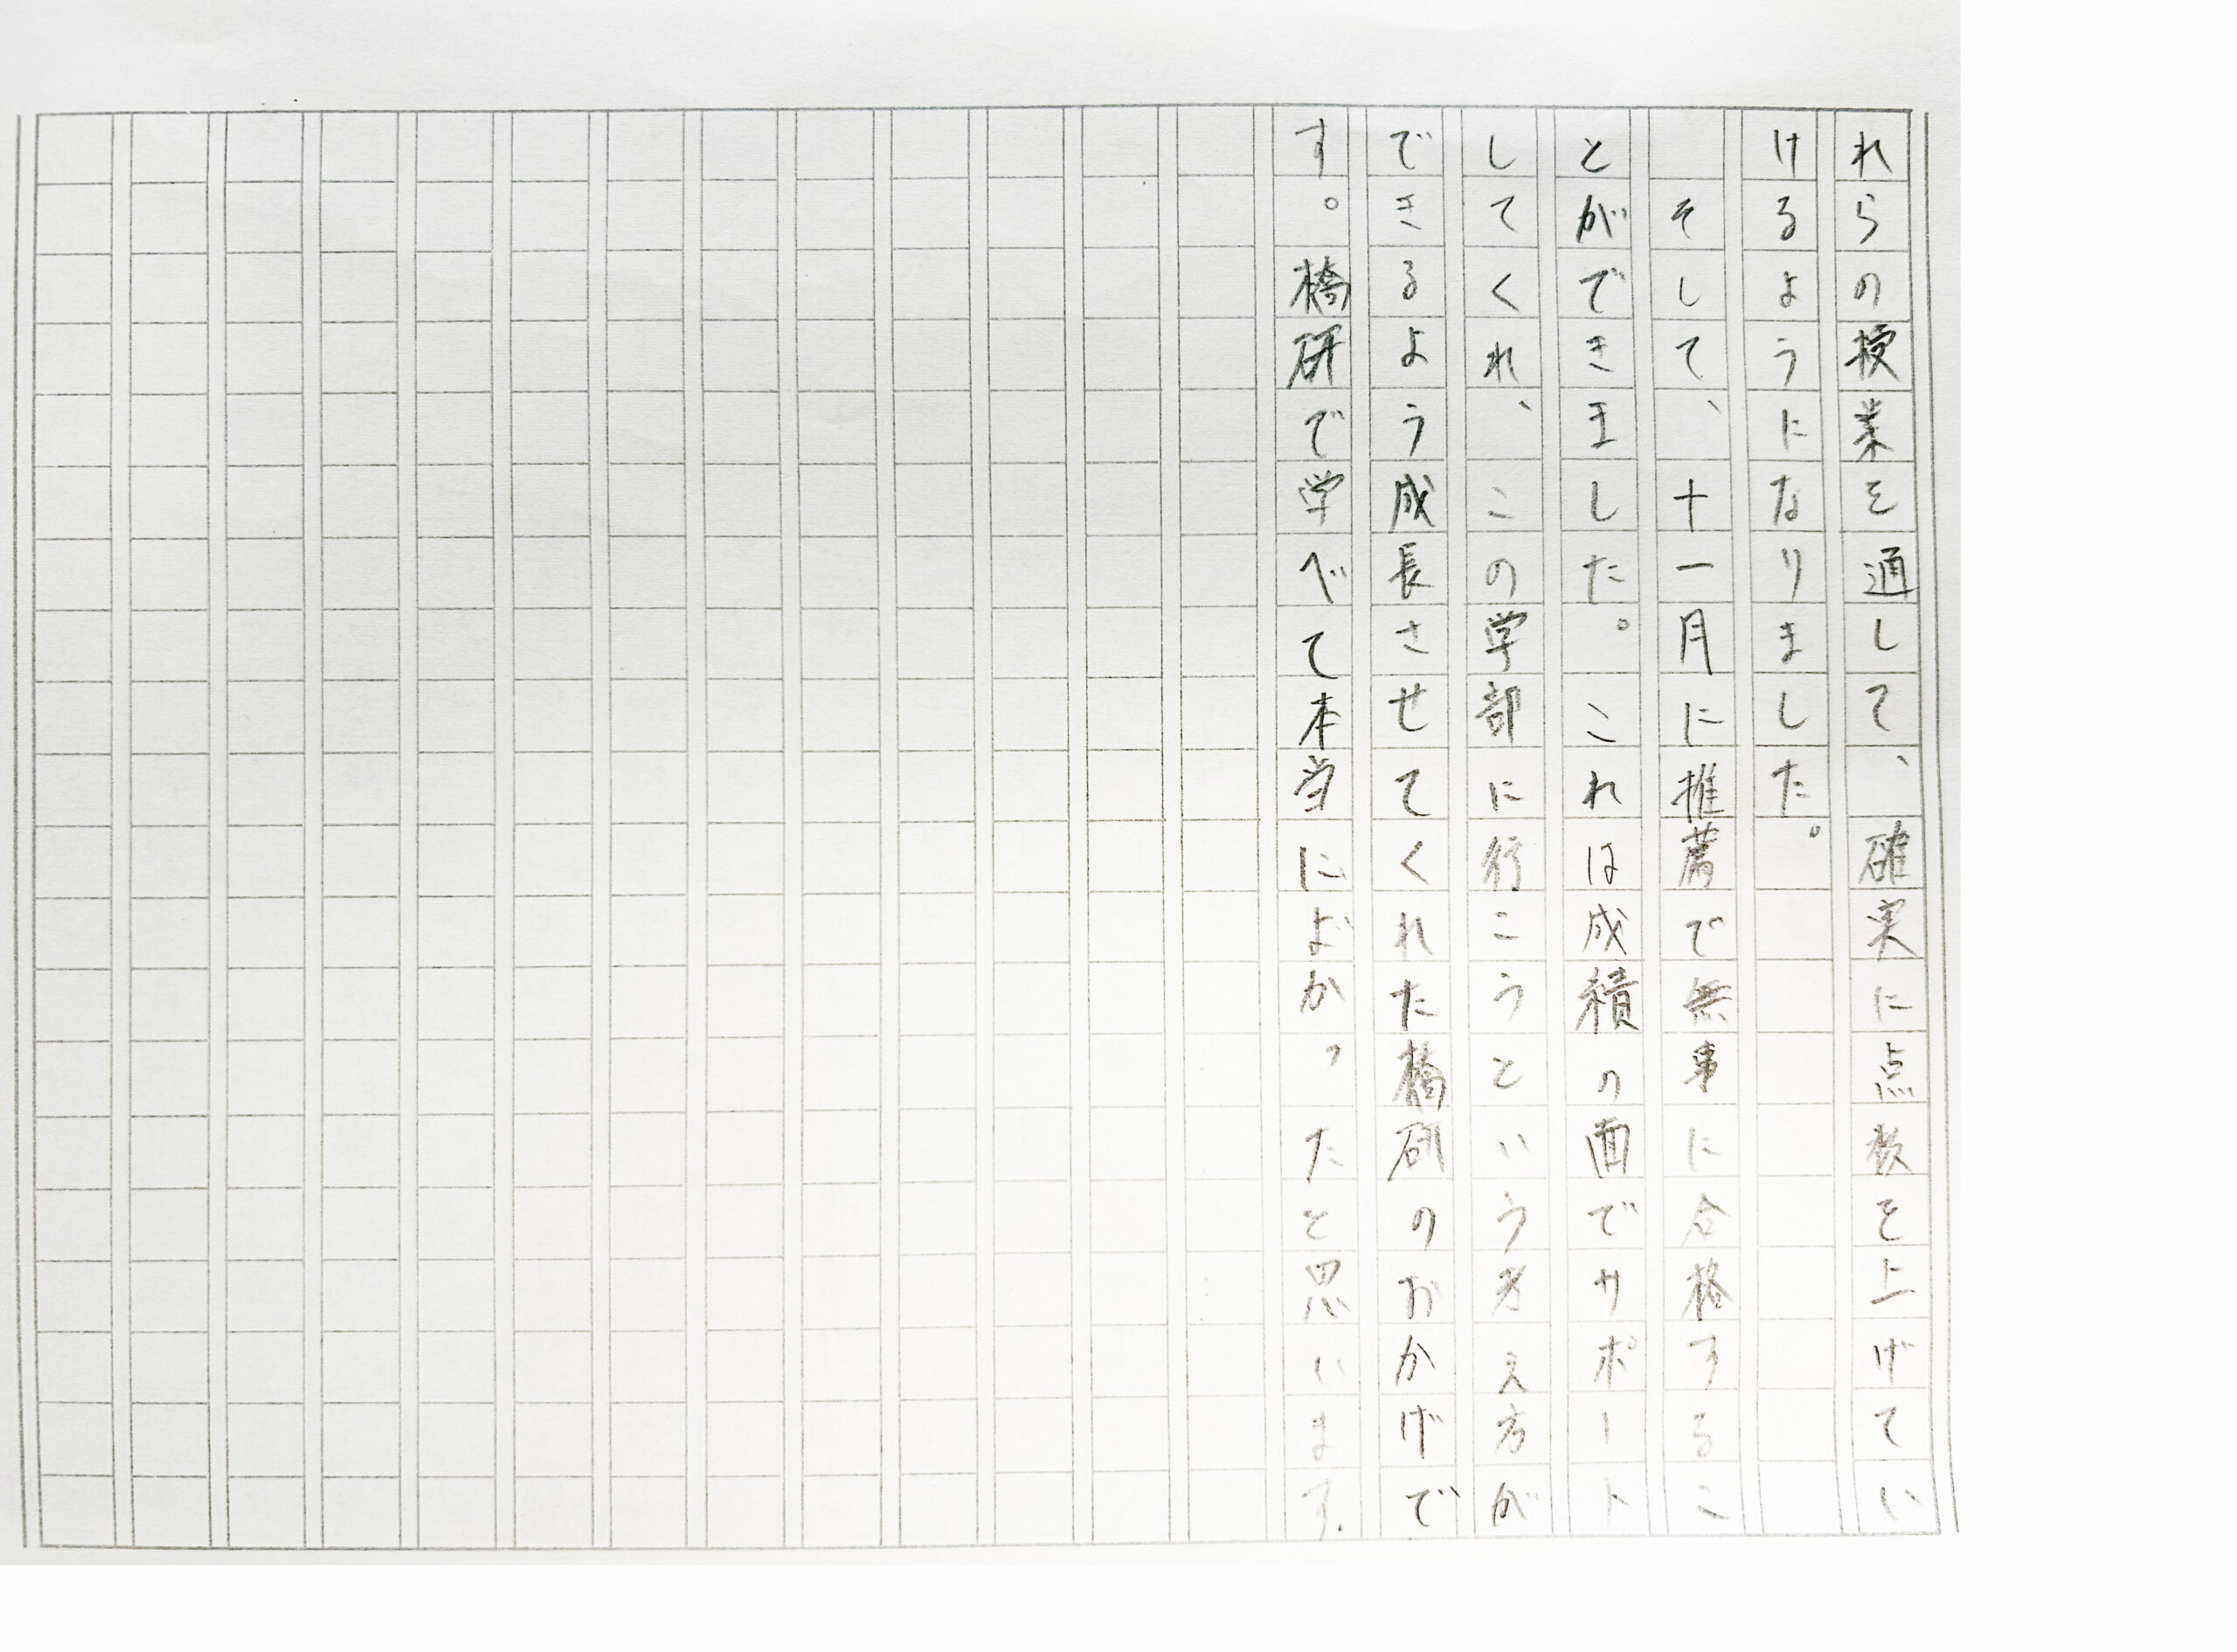 れらの授業を通して、確実に点数を上げてい
けるようになりました。
　そして、十一月に推薦で無事に合格するこ
とができました。これは成績の面でサポート
してくれ、この学部に行こうという考え方が
できるよう成長させてくれた橋研のおかげで
す。橋研で学べて本当によかったと思います。